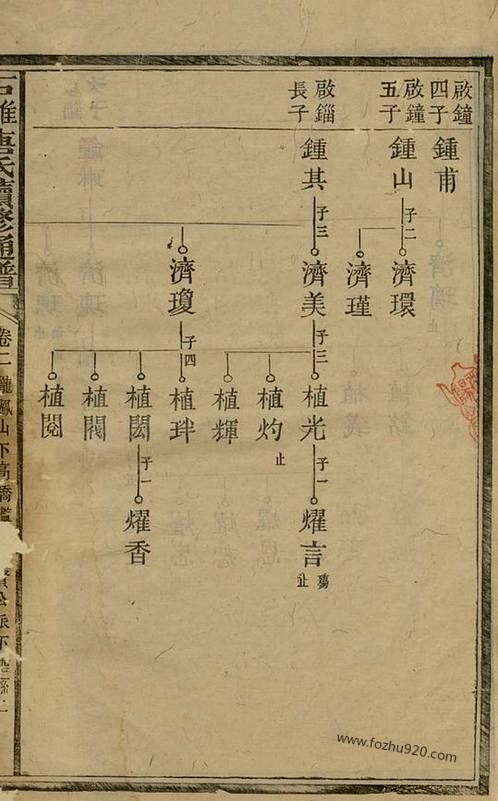 啟鐘
四子
鍾甫
啟鐘
五子
鍾山
子二
濟環
濟瑾
啟錙
長子
鍾其
子三
濟美
子三
植光
子一
燿言
殤
止
植灼
止
植輝
濟瓊
子四
植玤
植閎
子一
燿香
植閥
植閱
唐氏續修通譜
卷二
www.fozhu920.com